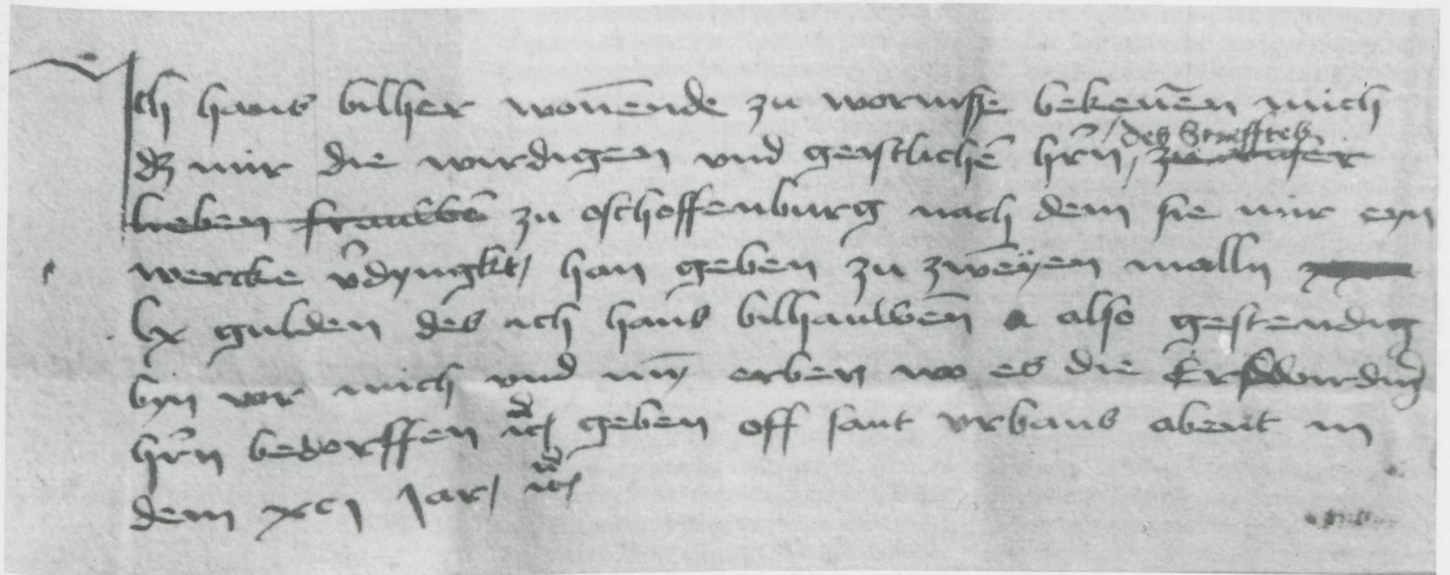 Ich hans bilher wonende zu wormsse bekenen mich
dz mir die wirdigen und geistlichen hrn / des Stiffteß zu unser
lieben frauwen zu oschoffenburg nach dem sie mir eyn
wercke vdyngkt / han geben zu zweyen malln
lx gulden des ich hans bilhauwen also gestendig
byn vor mich und myn erben wo es die Erwirdig
hrn bedorffen etc geben off sant urbans abent in
dem xcj Jar / etc